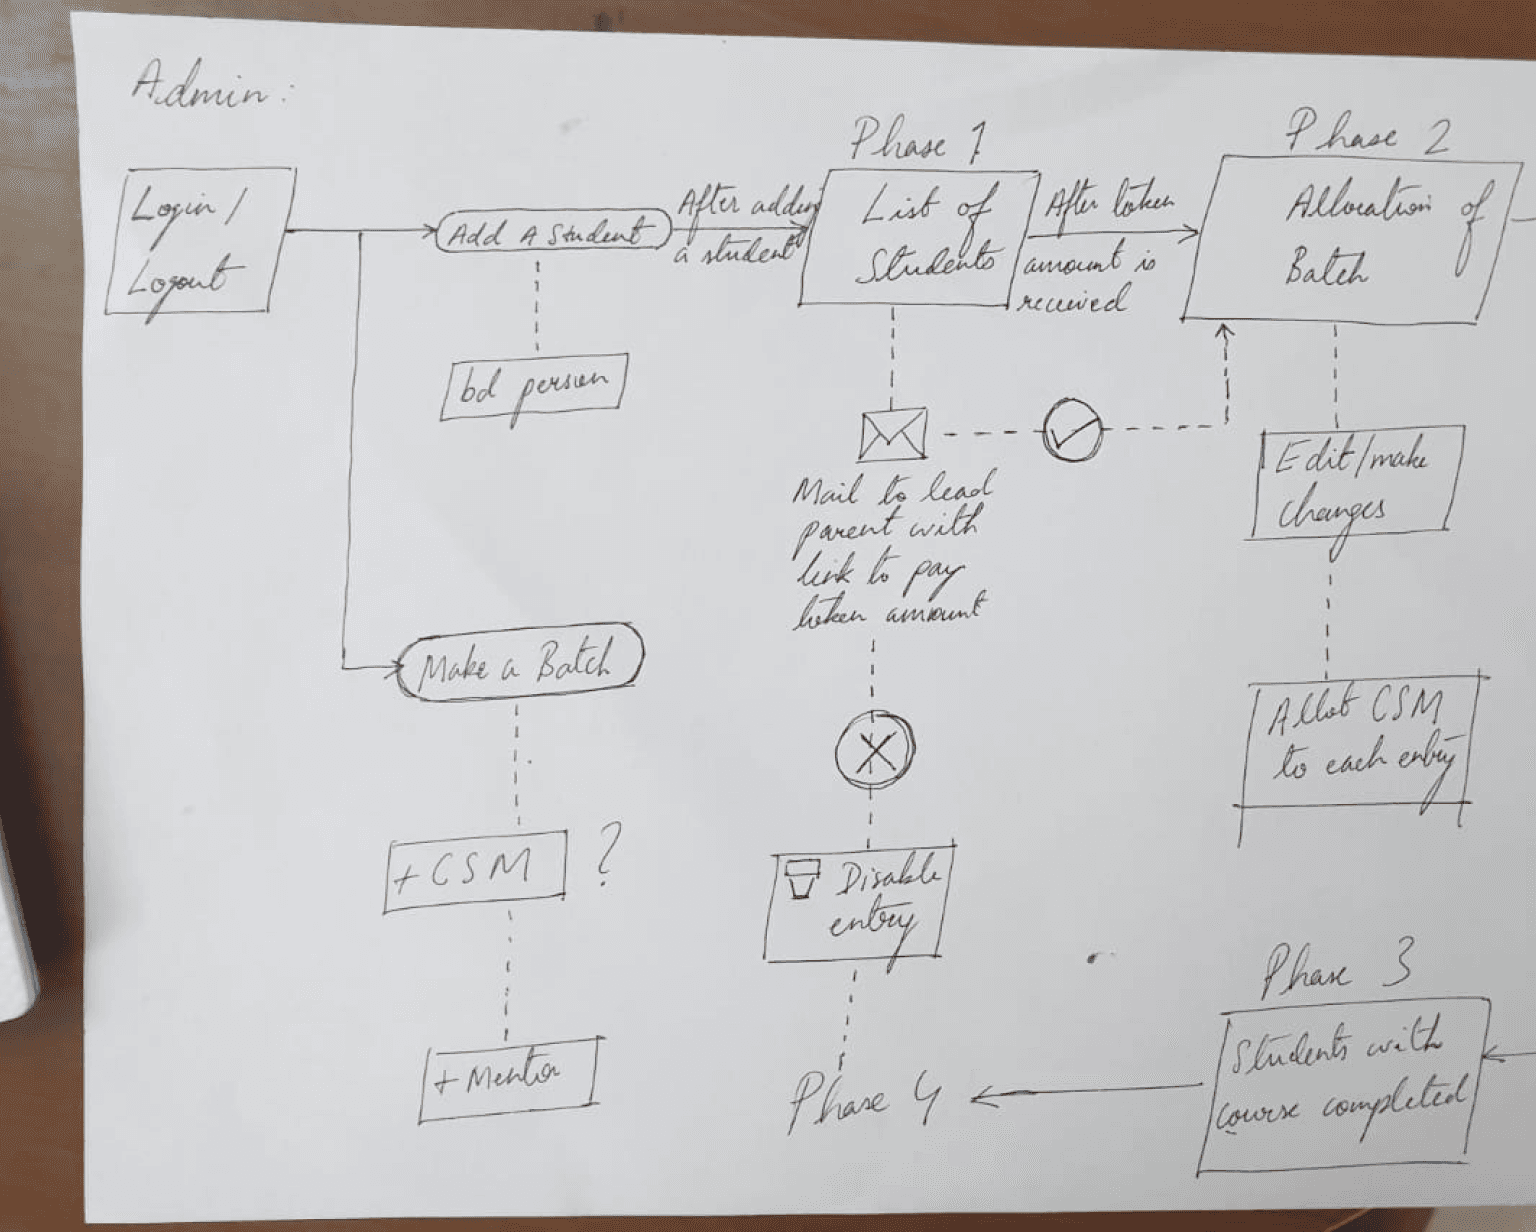 Admin:
Login /
Logout
Add A Student
After adding
a student
Phase 1
List of
Students
After token
amount is
received
Phase 2
Allocation of
Batch
bd person
Mail to lead
parent with
link to pay
token amount
Edit/make
changes
Make a Batch
Allot CSM
to each entry
+ CSM ?
Disable
entry
+ Mentor
Phase 3
Students with
course completed
Phase 4